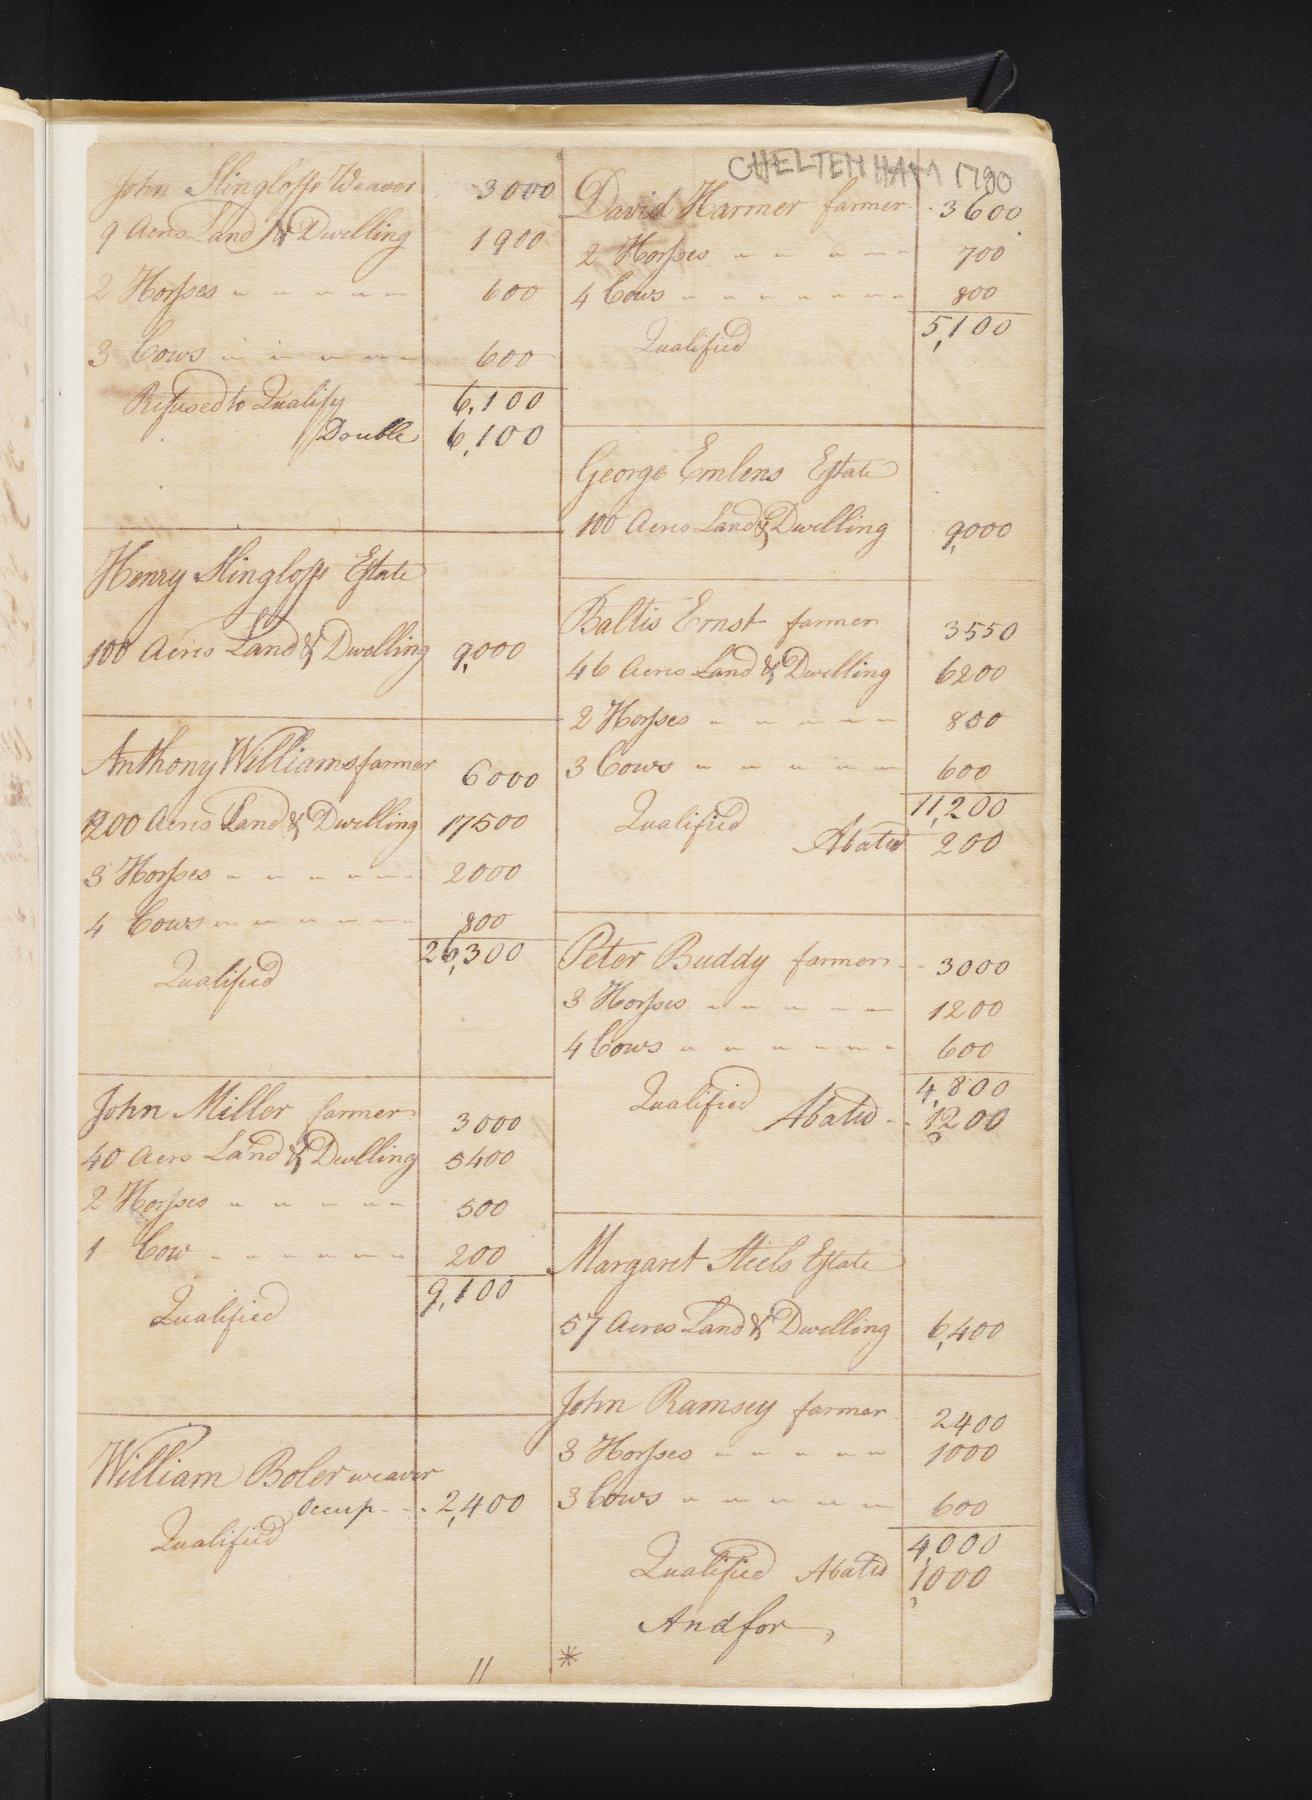 CHELTENHAM 1790
John Slingloffe Weaver 3000
9 Acres Land & Dwelling 1900
2 Horses 600
3 Cows 600
6,100
Refused to Qualify
Double 6,100
Henry Slingloff Estate
100 Acres Land & Dwelling 9,000
Anthony Williams farmer 6000
200 Acres Land & Dwelling 17500
3 Horses 2000
4 Cows 800
26,300
Qualified
John Miller farmer 3000
40 Acrs Land & Dwelling 5400
2 Horses 500
1 Cow 200
9,100
Qualified
William Boler weaver
Occup 2,400
Qualified
11
David Harmer farmer 3600
2 Horses 700
4 Cows 800
5,100
Qualified
George Emlens Estate
100 Acres Land & Dwelling 9,000
Baltis Ernst farmer 3550
46 Acres Land & Dwelling 6200
2 Horses 850
3 Cows 600
11,200
Qualified
Abated 200
Peter Buddy farmer 3000
3 Horses 1200
4 Cows 600
4,800
Qualified Abated 1200
Margaret Steels Estate
57 Acres Land & Dwelling 6,400
John Ramsey farmer 2400
3 Horses 1000
3 Cows 600
4,000
Qualified Abated 1000
And for
*